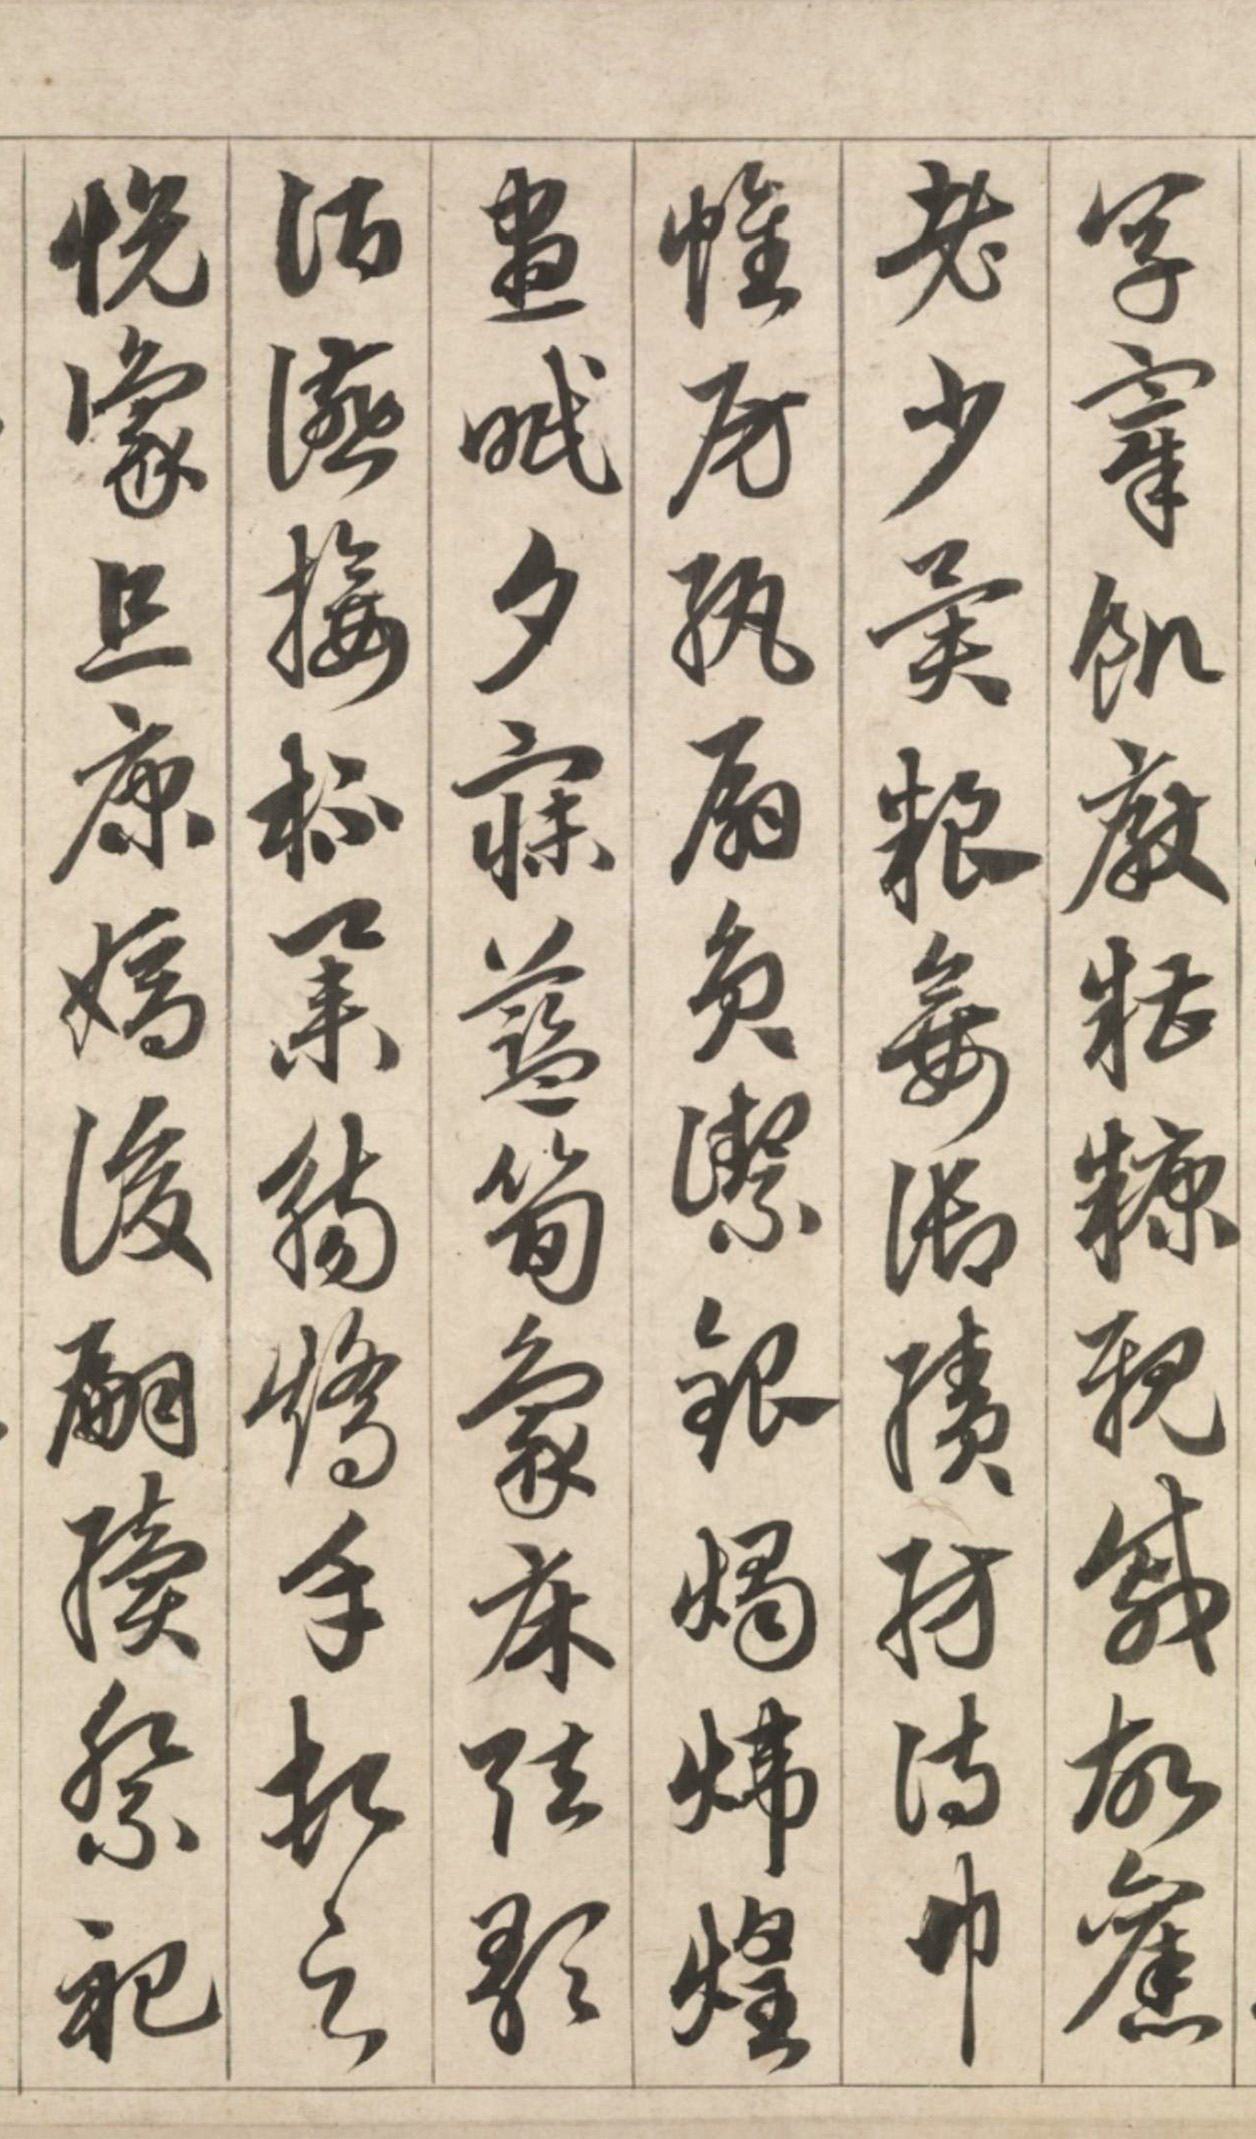 烹宰飢厭糟糠親戚故舊
老少異粮妾御績紡侍巾
帷房紈扇員潔銀燭煒煌
晝眠夕寐藍筍象床弦歌
酒讌接杯舉觴矯手頓足
悅豫且康嫡後嗣續祭祀